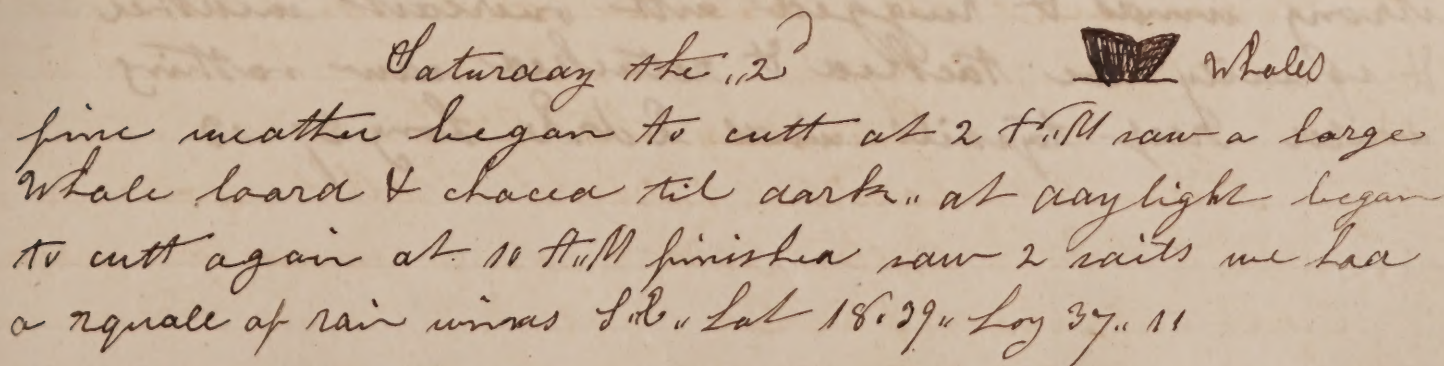 Saturday the ,,2d Whales
fine weather began to cutt at 2 P,,M saw a large
Whale loard & chaced til dark,, at daylight began
to cutt again at 10 A,,M finished saw 2 sails we had
a squale of rain winds S,,E,, Lat 18,,39,, Log 37,,11